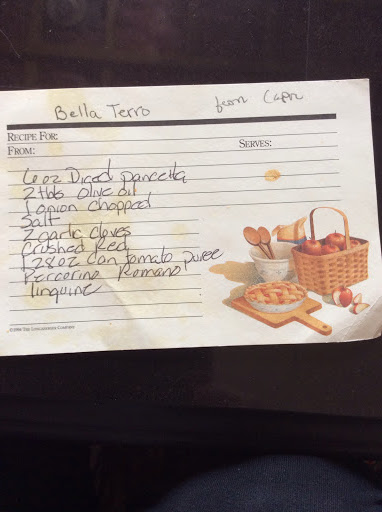 Bella Terro from Capri
RECIPE FOR:
FROM: SERVES:
6 oz Diced pancetta
2 tbs olive oil
1 onion chopped
Salt
2 garlic cloves
Crushed Red
1 28oz can tomato puree
Peccorino Romano
linguine
©1994 THE LONGABERGER COMPANY